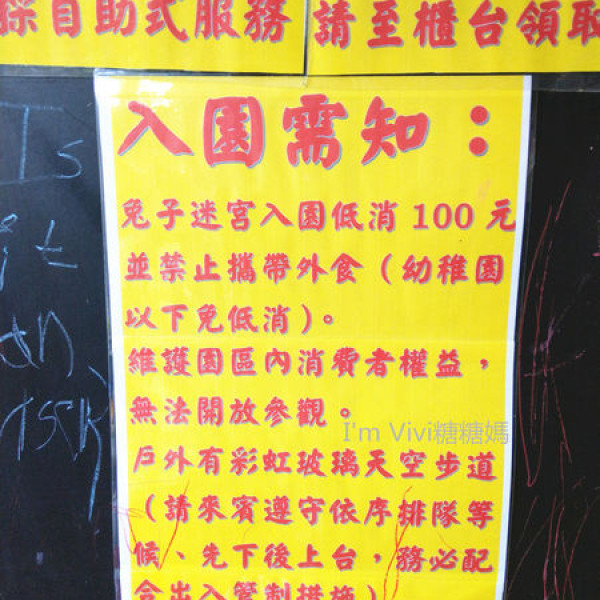 採自助式服務
請至櫃台領取
入園需知：
兔子迷宮入園低消 100 元
並禁止攜帶外食（幼稚園
以下免低消）。
維護園區內消費者權益，
無法開放參觀。
I'm Vivi糖糖媽
戶外有彩虹玻璃天空步道
（請來賓遵守依序排隊等
候、先下後上台，務必配
合出入管制措施）
Is
it
an